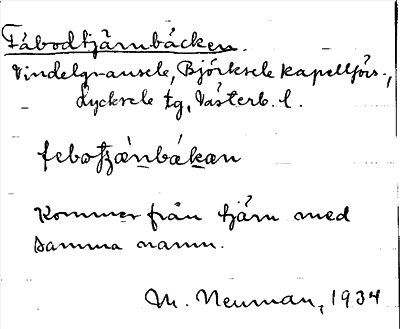 Fäbodtjärnbäcken.
Vindelgransele, Björksele kapellförs.,
Lycksele tg, Västerb. l.
Kommer från tjärn med
samma namn.
M. Neuman, 1934